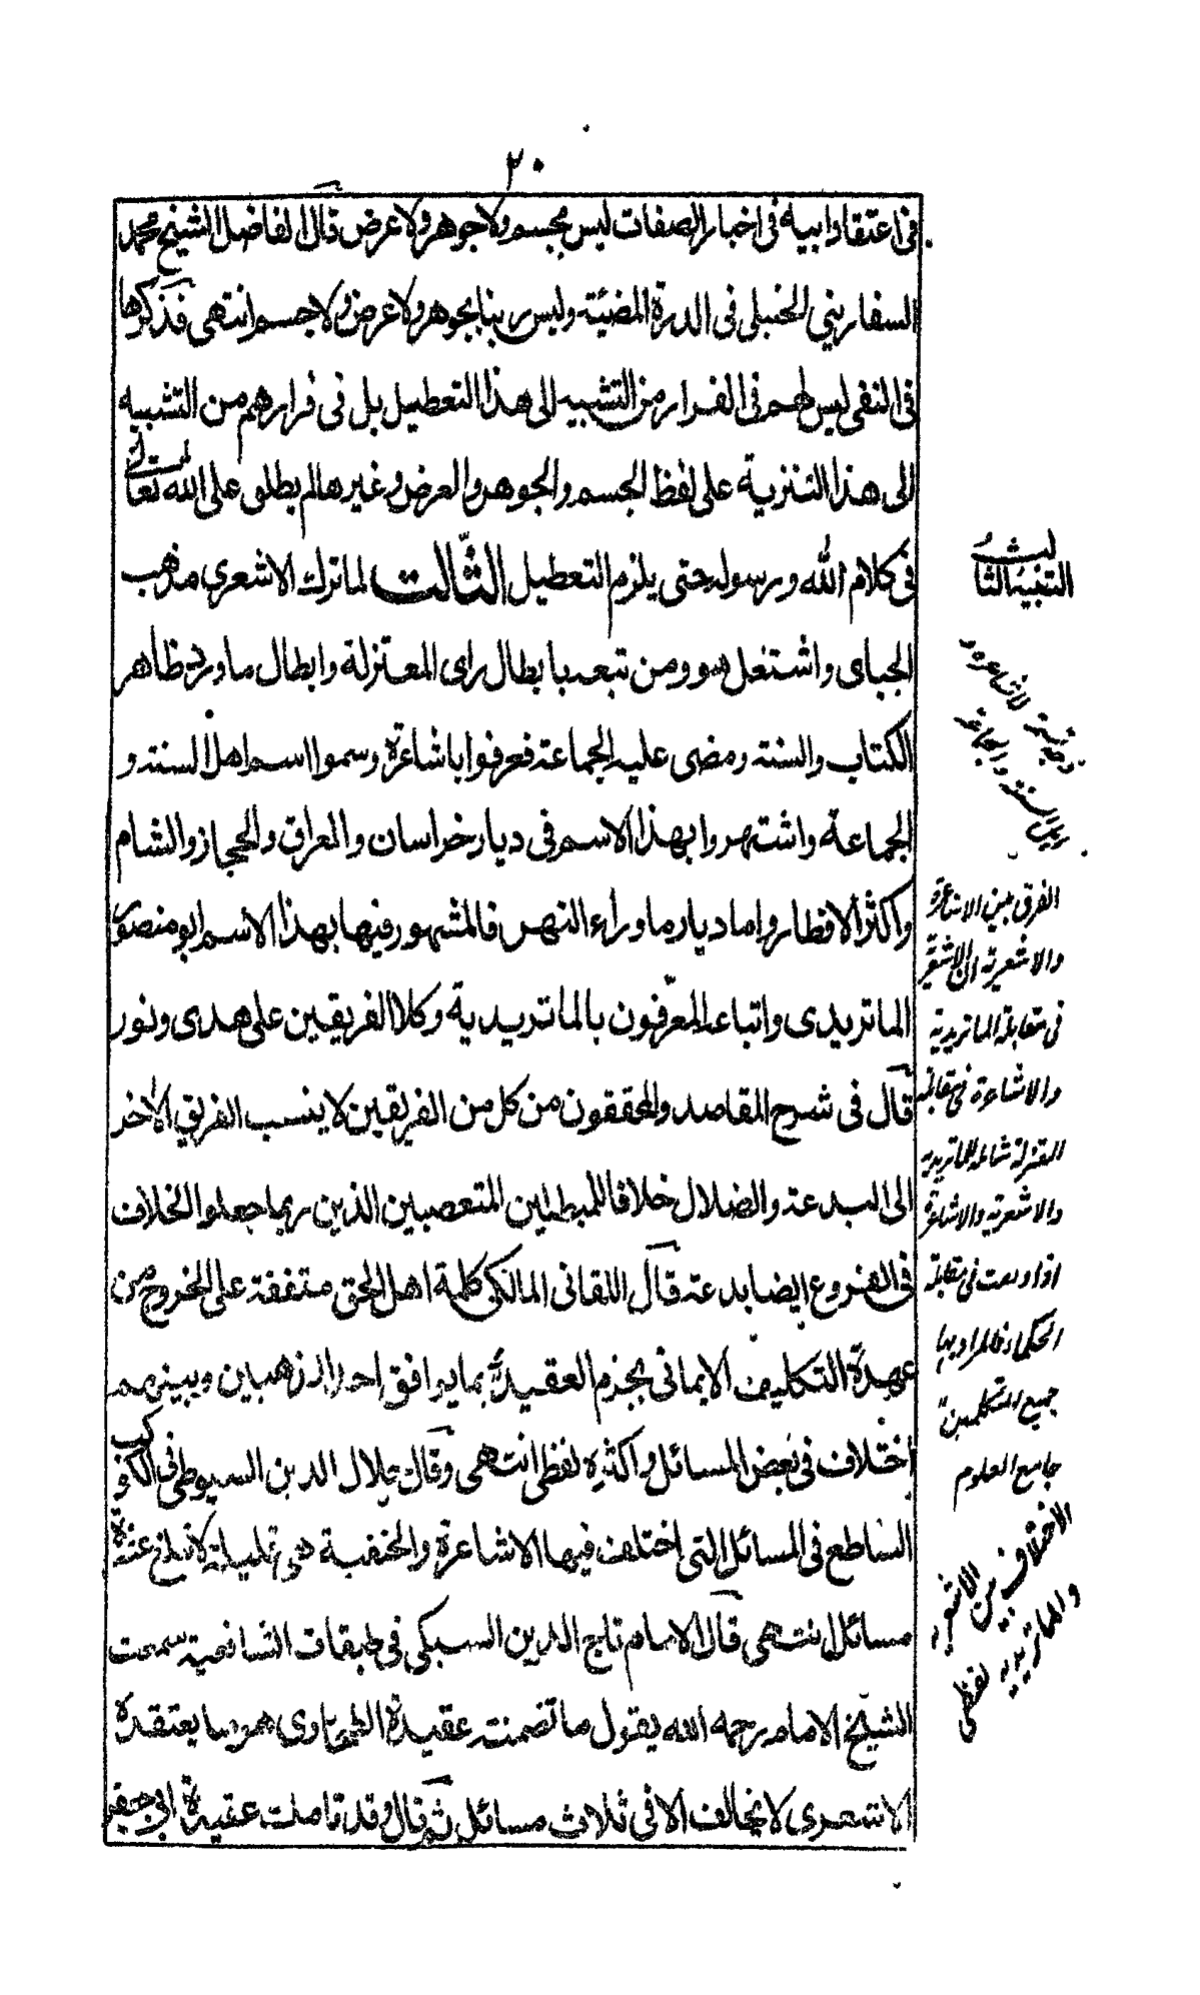 ٢٠
فى اعتقاد ابيه فى اخبار الصفات ليس بجسم ولا جوهر ولا عرض قال الفاضل الشيخ محمد
السفاريني الحنبلى فى الدرة المضيئة وليس ربنا بجوهر ولا عرض ولا جسم انتهى فذكرها
فى النفى ليس لهم فى الفرار من التشبيه الى هذا التعطيل بل فى فرارهم من التشبيه
الى هذا التنزيه على لفظ الجسم والجوهر والعرض وغيرها لم يطلق على الله تعالى
فى كلام الله ورسوله حتى يلزم التعطيل الثالث لما ترك الاشعرى مذهب
الجباى واشتغل هو ومن تبعه بابطال راى المعتزلة وابطال ما ورد ظاهر
الكتاب والسنة ومضى عليه الجماعة فعرفوا باشاعرة وسموا اسم اهل السنة و
الجماعة واشتهروا بهذا الاسم فى ديار خراسان والعراق والحجاز والشام
واكثر الاقطار واما ديار ما وراء النهر فالمشهور فيها بهذا الاسم ابو منصور
الماتريدى واتباعه المعرفون بالماتريدية وكلا الفريقين على هدى ونور
قال فى شرح المقاصد والمحققون من كل من الفريقين لا ينسب الفريق الاخر
الى البدعة والضلال خلافا للمبطلين المتعصبين الذين ربما جعلوا الخلاف
فى الفروع ايضا بدعة قال اللقانى المالكى كلمة اهل الحق متفقة على الخروج من
عهدة التكليف الايمانى بجزم العقيدة بما يوافق احد المذهبين وبينهم
اختلاف فى بعض المسائل واكثره لفظى انتهى وقال جلال الدين السيوطى فى الكوكب
الساطع فى المسائل التى اختلف فيها الاشاعرة والحنفية هى قليلة لا تبلغ عشرة
مسائل انتهى قال الامام تاج الدين السبكى فى طبقات الشافعية سمعت
الشيخ الامام رحمه الله يقول ما تضمنته عقيدة الطحاوى هو ما يعتقده
الاشعرى لا يخالف الا فى ثلاث مسائل ثم قال وقد تاملت عقيدة ابى جعفر
التنبيه الثالث
وجه تسمية الاشاعرة
باهل السنة والجماعة
الفرق بين الاشاعرة
والاشعرية ان الاشعرية
فى مقابلة الماتريدية
والاشاعرة فى مقابلة
المعتزلة شاملة للماتريدية
والاشعرية والاشاعرة
اذا وقعت فى مقابلة
الحكماء فالمراد بها
جميع المتكلمين
جامع العلوم
الاختلاف بين الاشعرية
والماتريدية لفظى